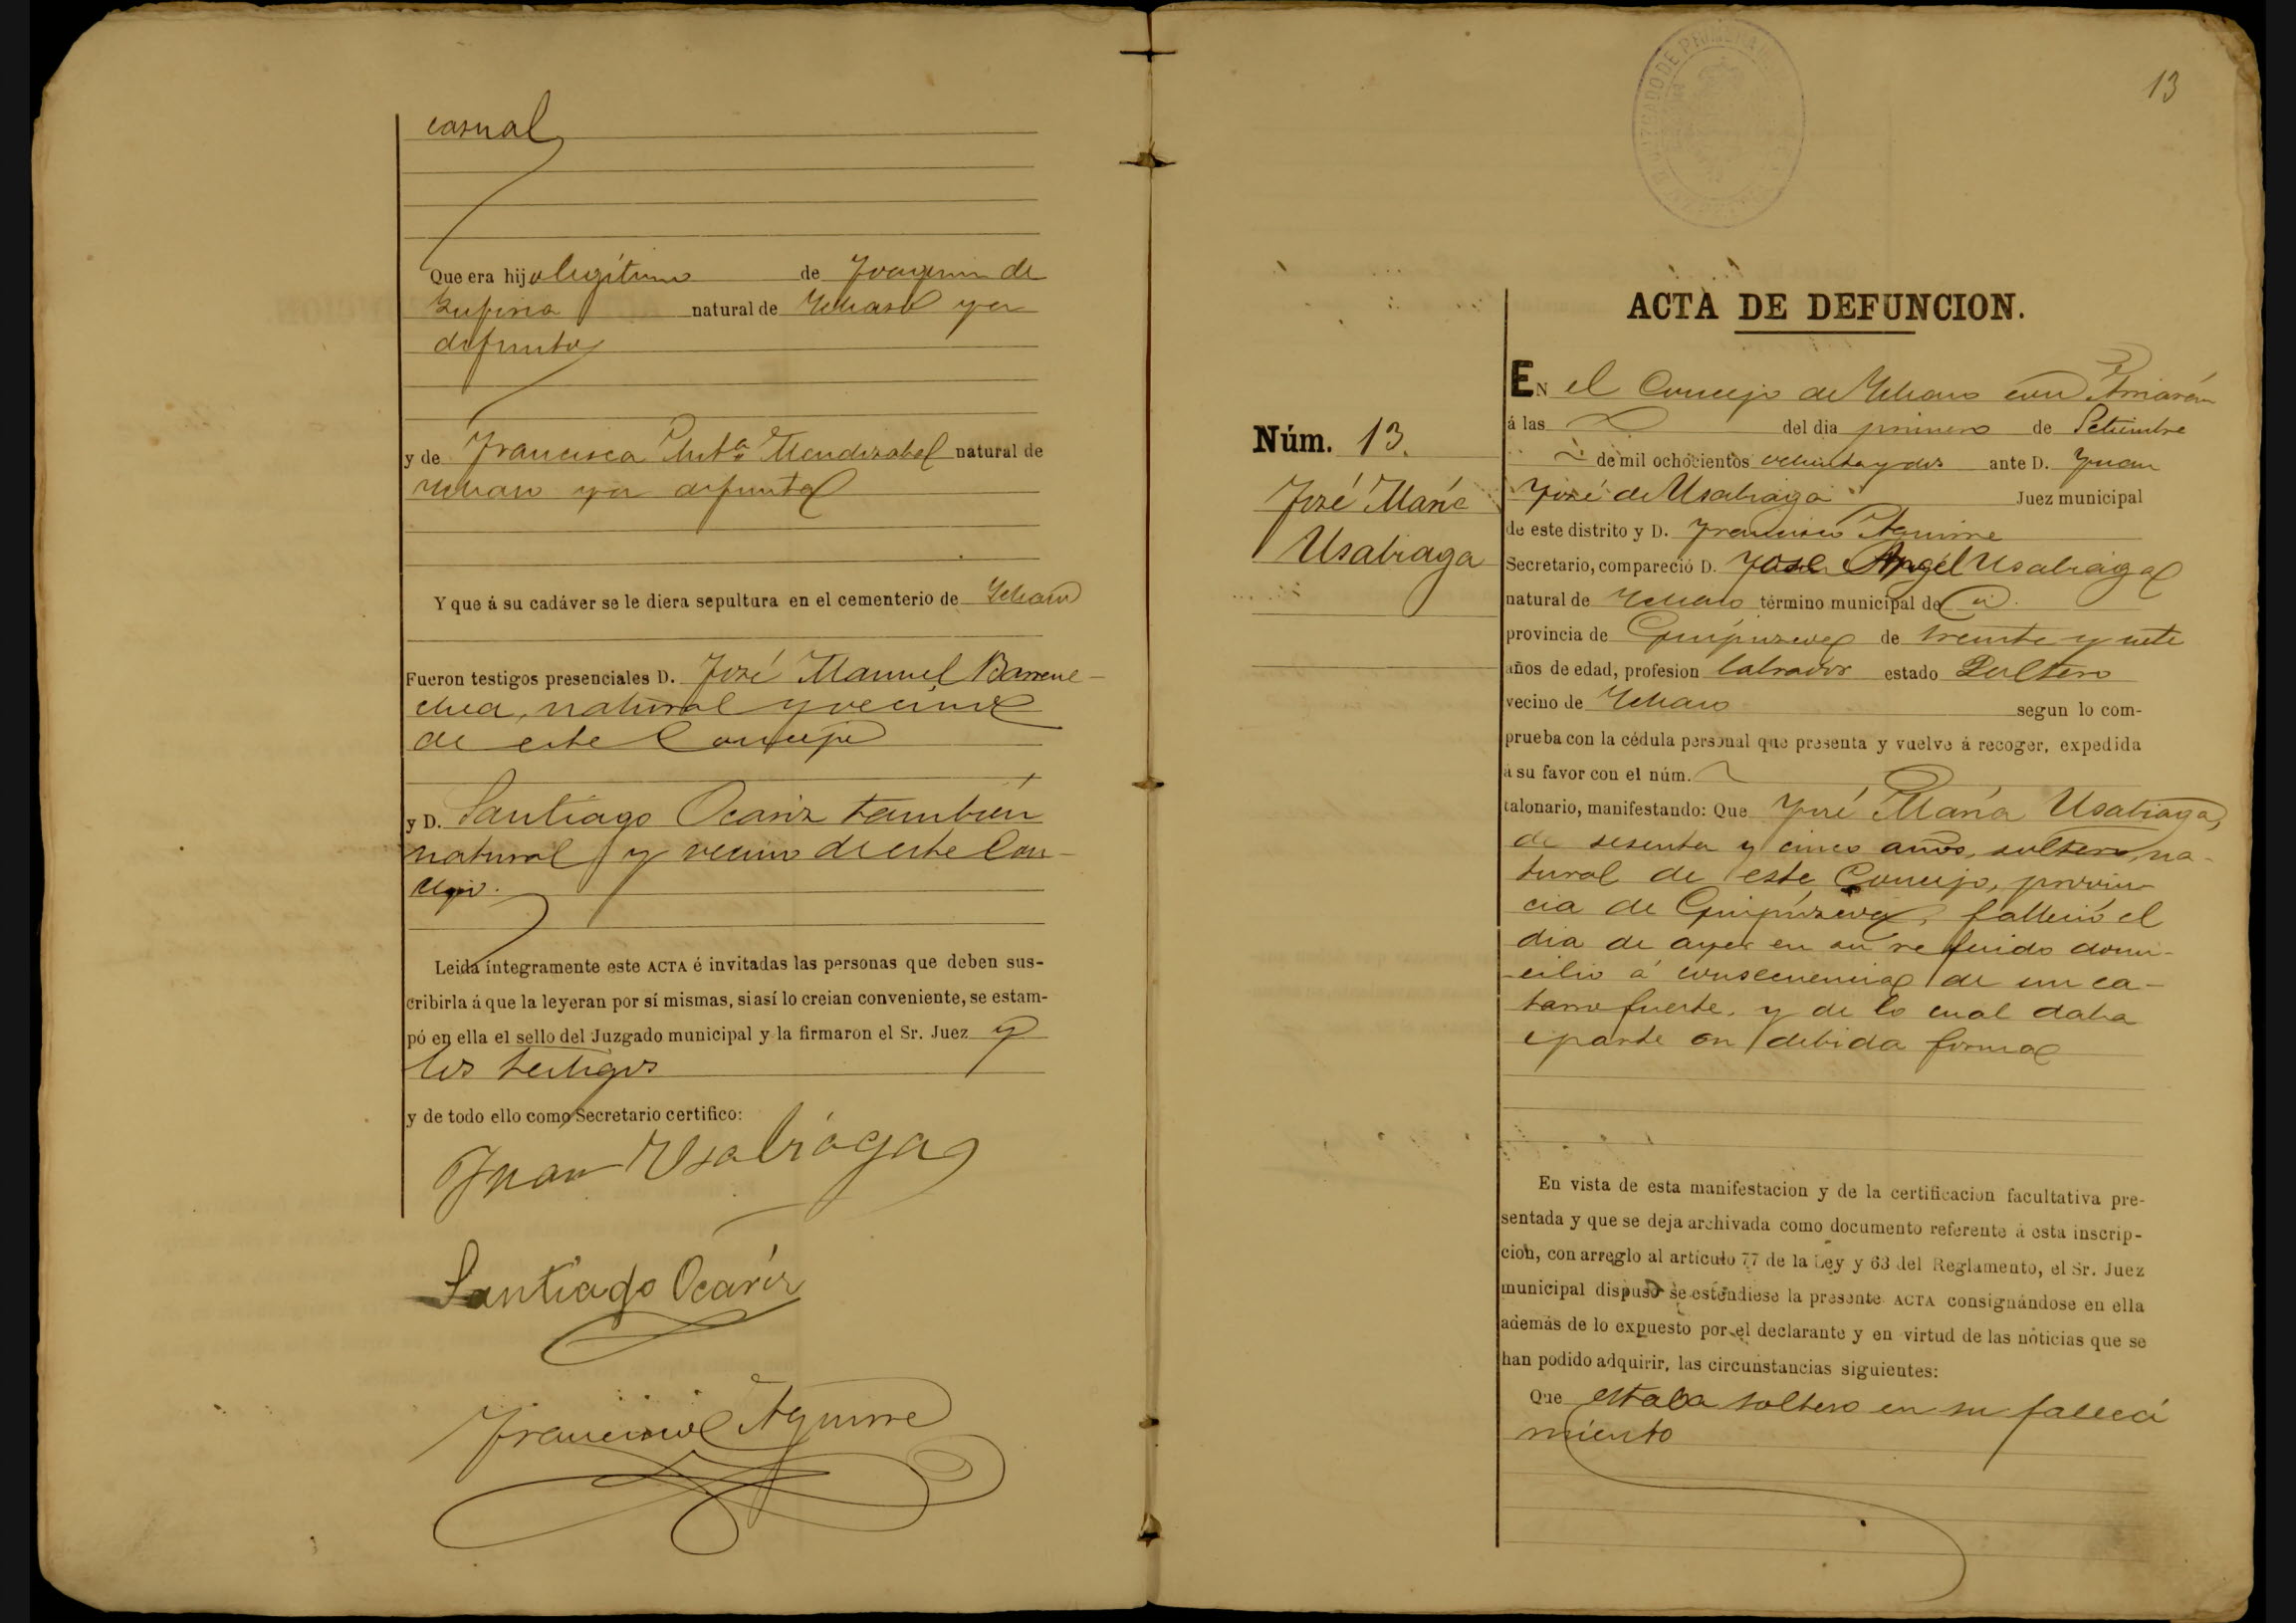 casual
Que era hijo legítimo de Joaquin de
Zufiria natural de Ichaso ya
difunto
y de Francisca Antª Mendizabal natural de
Ichaso ya difunta
Y que á su cadáver se le diera sepultura en el cementerio de Ichaso
Fueron testigos presenciales D. José Manuel Barrene-
chea, natural y vecino
de este Concejo
y D. Santiago Ocariz también
natural y vecino de este Con-
cejo.
Leida íntegramente este ACTA é invitadas las personas que deben sus-
cribirla á que la leyeran por sí mismas, si así lo creian conveniente, se estam-
pó en ella el sello del Juzgado municipal y la firmaron el Sr. Juez y
los testigos
y de todo ello como Secretario certifico:
Juan Usabiaga
Santiago Ocariz
Francisco Aguirre
13
ACTA DE DEFUNCION.
Núm. 13.
José María
Usabiaga
EN el Concejo de Ichaso con Arriarán
á las del dia primero de Setiembre
de mil ochocientos ochenta y dos ante D. Juan
José de Usabiaga Juez municipal
de este distrito y D. Francisco Aguirre
Secretario, compareció D. José Angel Usabiaga
natural de Ichaso término municipal de id.
provincia de Guipúzcoa de treinta y siete
años de edad, profesion labrador estado Soltero
vecino de Ichaso segun lo com-
prueba con la cédula personal que presenta y vuelve á recoger, expedida
á su favor con el núm.
talonario, manifestando: Que José María Usabiaga,
de sesenta y cinco años, soltero, na-
tural de este Concejo, provin-
cia de Guipúzcoa, falleció el
dia de ayer en su referido domi-
cilio á consecuencia de un ca-
tarro fuerte, y de lo cual daba
parte en debida forma
En vista de esta manifestacion y de la certificacion facultativa pre-
sentada y que se deja archivada como documento referente á esta inscrip-
cion, con arreglo al artículo 77 de la Ley y 63 del Reglamento, el Sr. Juez
municipal dispuso se estendiese la presente ACTA consignándose en ella
además de lo expuesto por el declarante y en virtud de las noticias que se
han podido adquirir, las circunstancias siguientes:
Que estaba soltero en su falleci
miento